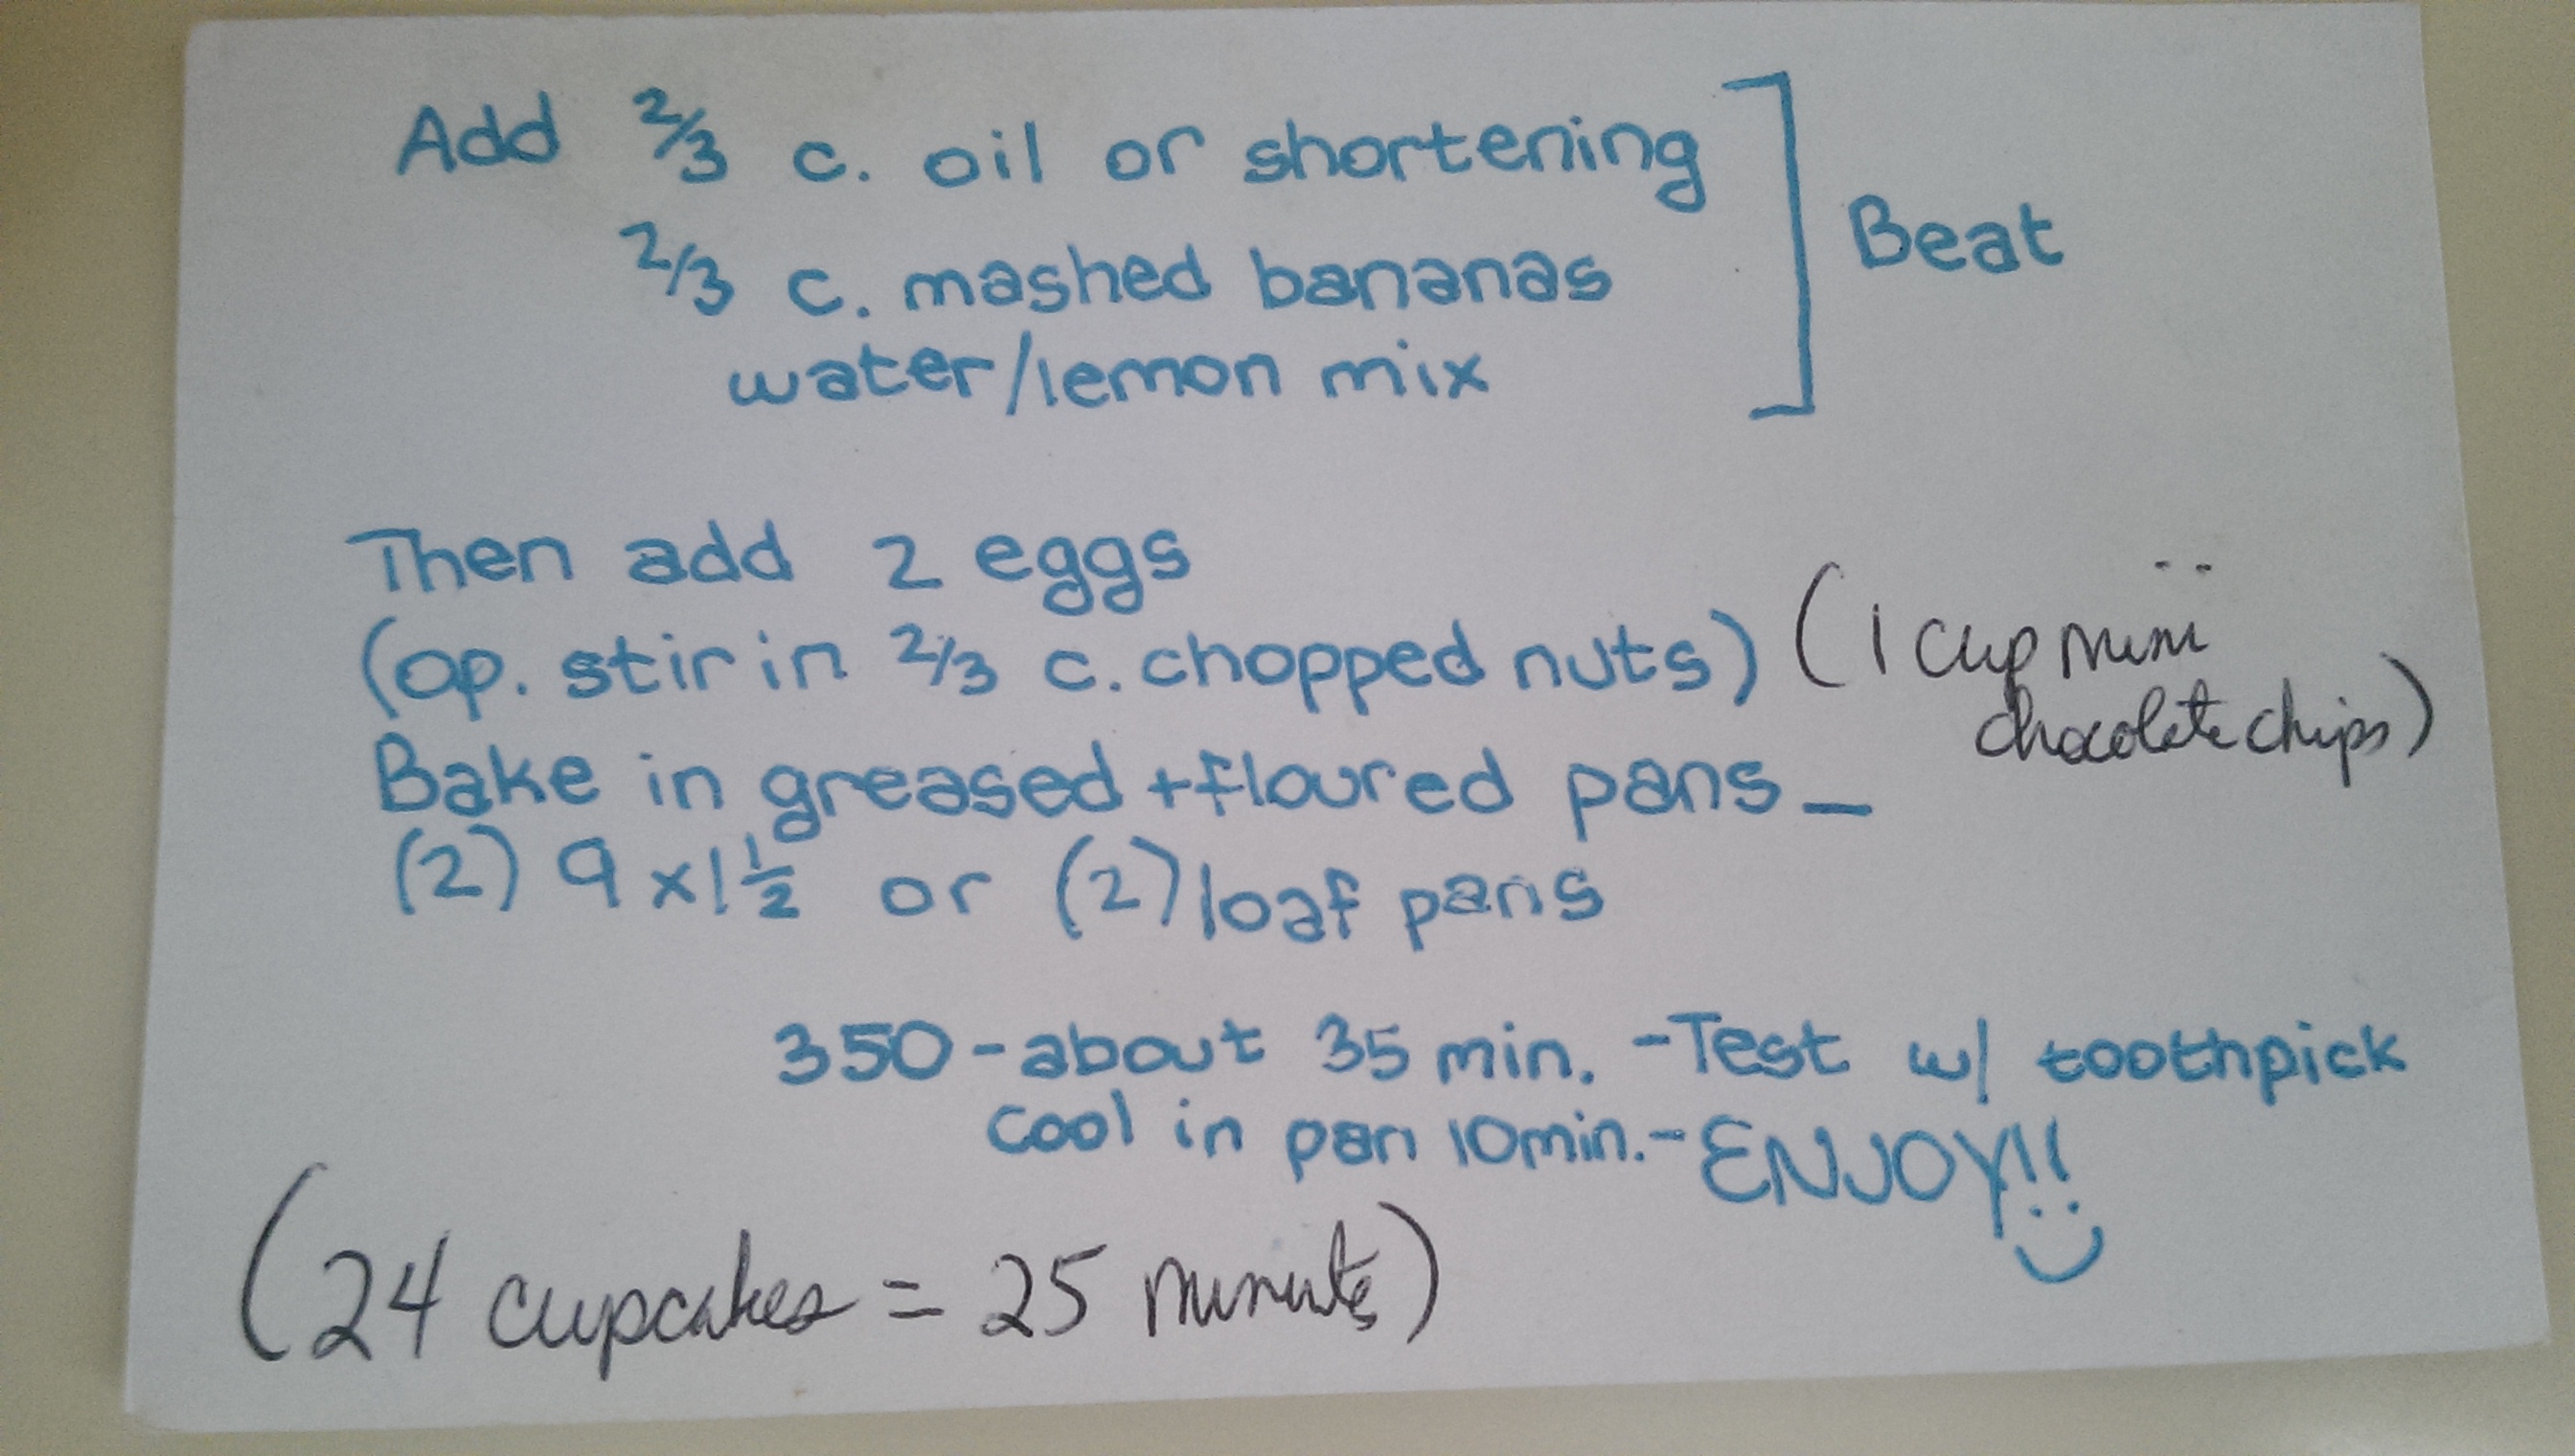 Add 2/3 c. oil or shortening
2/3 c. mashed bananas
water/lemon mix
Beat
Then add 2 eggs
(op. stir in 2/3 c. chopped nuts) (1 cup mini
chocolate chips)
Bake in greased + floured pans -
(2) 9 x 1 1/2 or (2) loaf pans
350 - about 35 min. - Test w/ toothpick
cool in pan 10 min. - ENJOY!!
(24 cupcakes = 25 minutes)